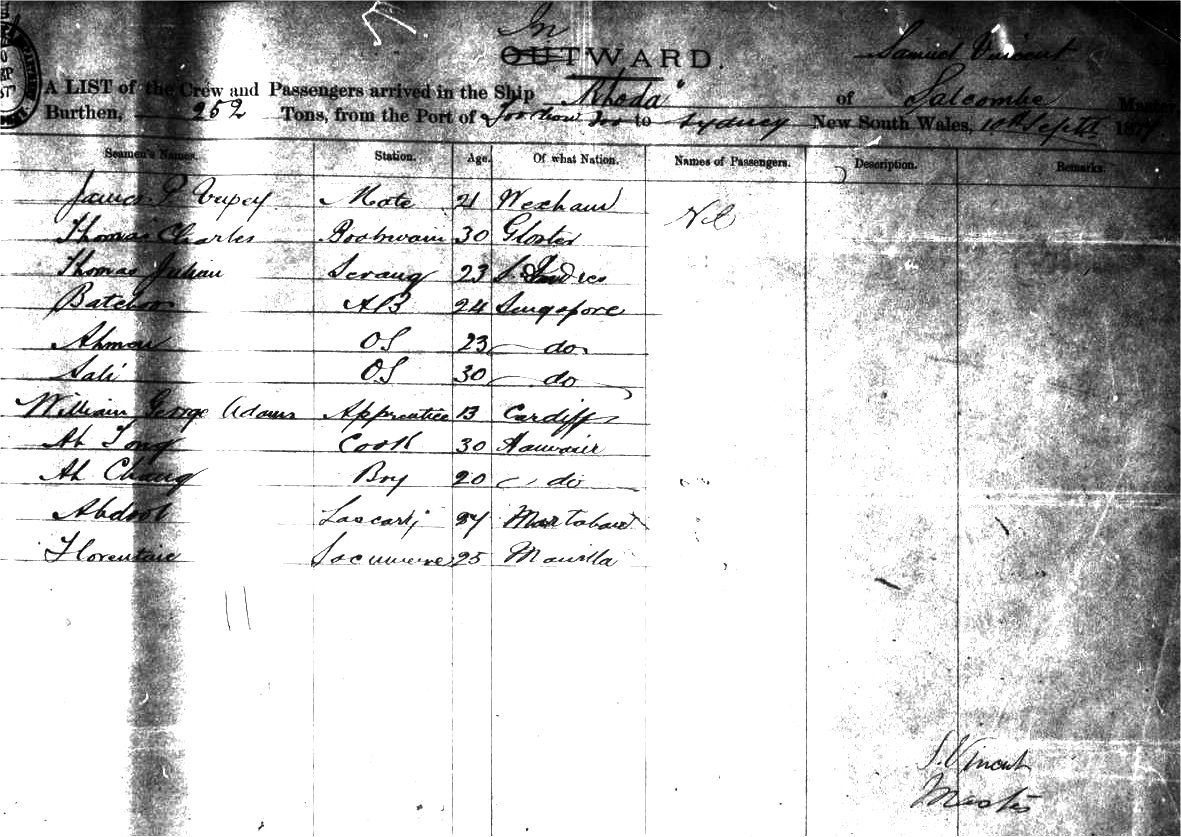 In
OUTWARD.
Samuel Vincent
A LIST of the Crew and Passengers arrived in the Ship "Rhoda" of Salcombe Master
Burthen, 252 Tons, from the Port of Foo Chow Foo to Sydney New South Wales, 10th Septr 187
Seamen's Names. Station. Age. Of what Nation. Names of Passengers. Description. Remarks.
James P Mate 21
Thomas Charles 30 Gloster
Thomas Julian Serang 23
AB 24 Singapore
OS 23 do
Sali OS 30 do
William George Adams Apprentice Cardiff
Ah Tong Cook 30
Ah Chang Boy 20 do
Abdool
25 Manilla
Nil
11
S. Vincent
Master